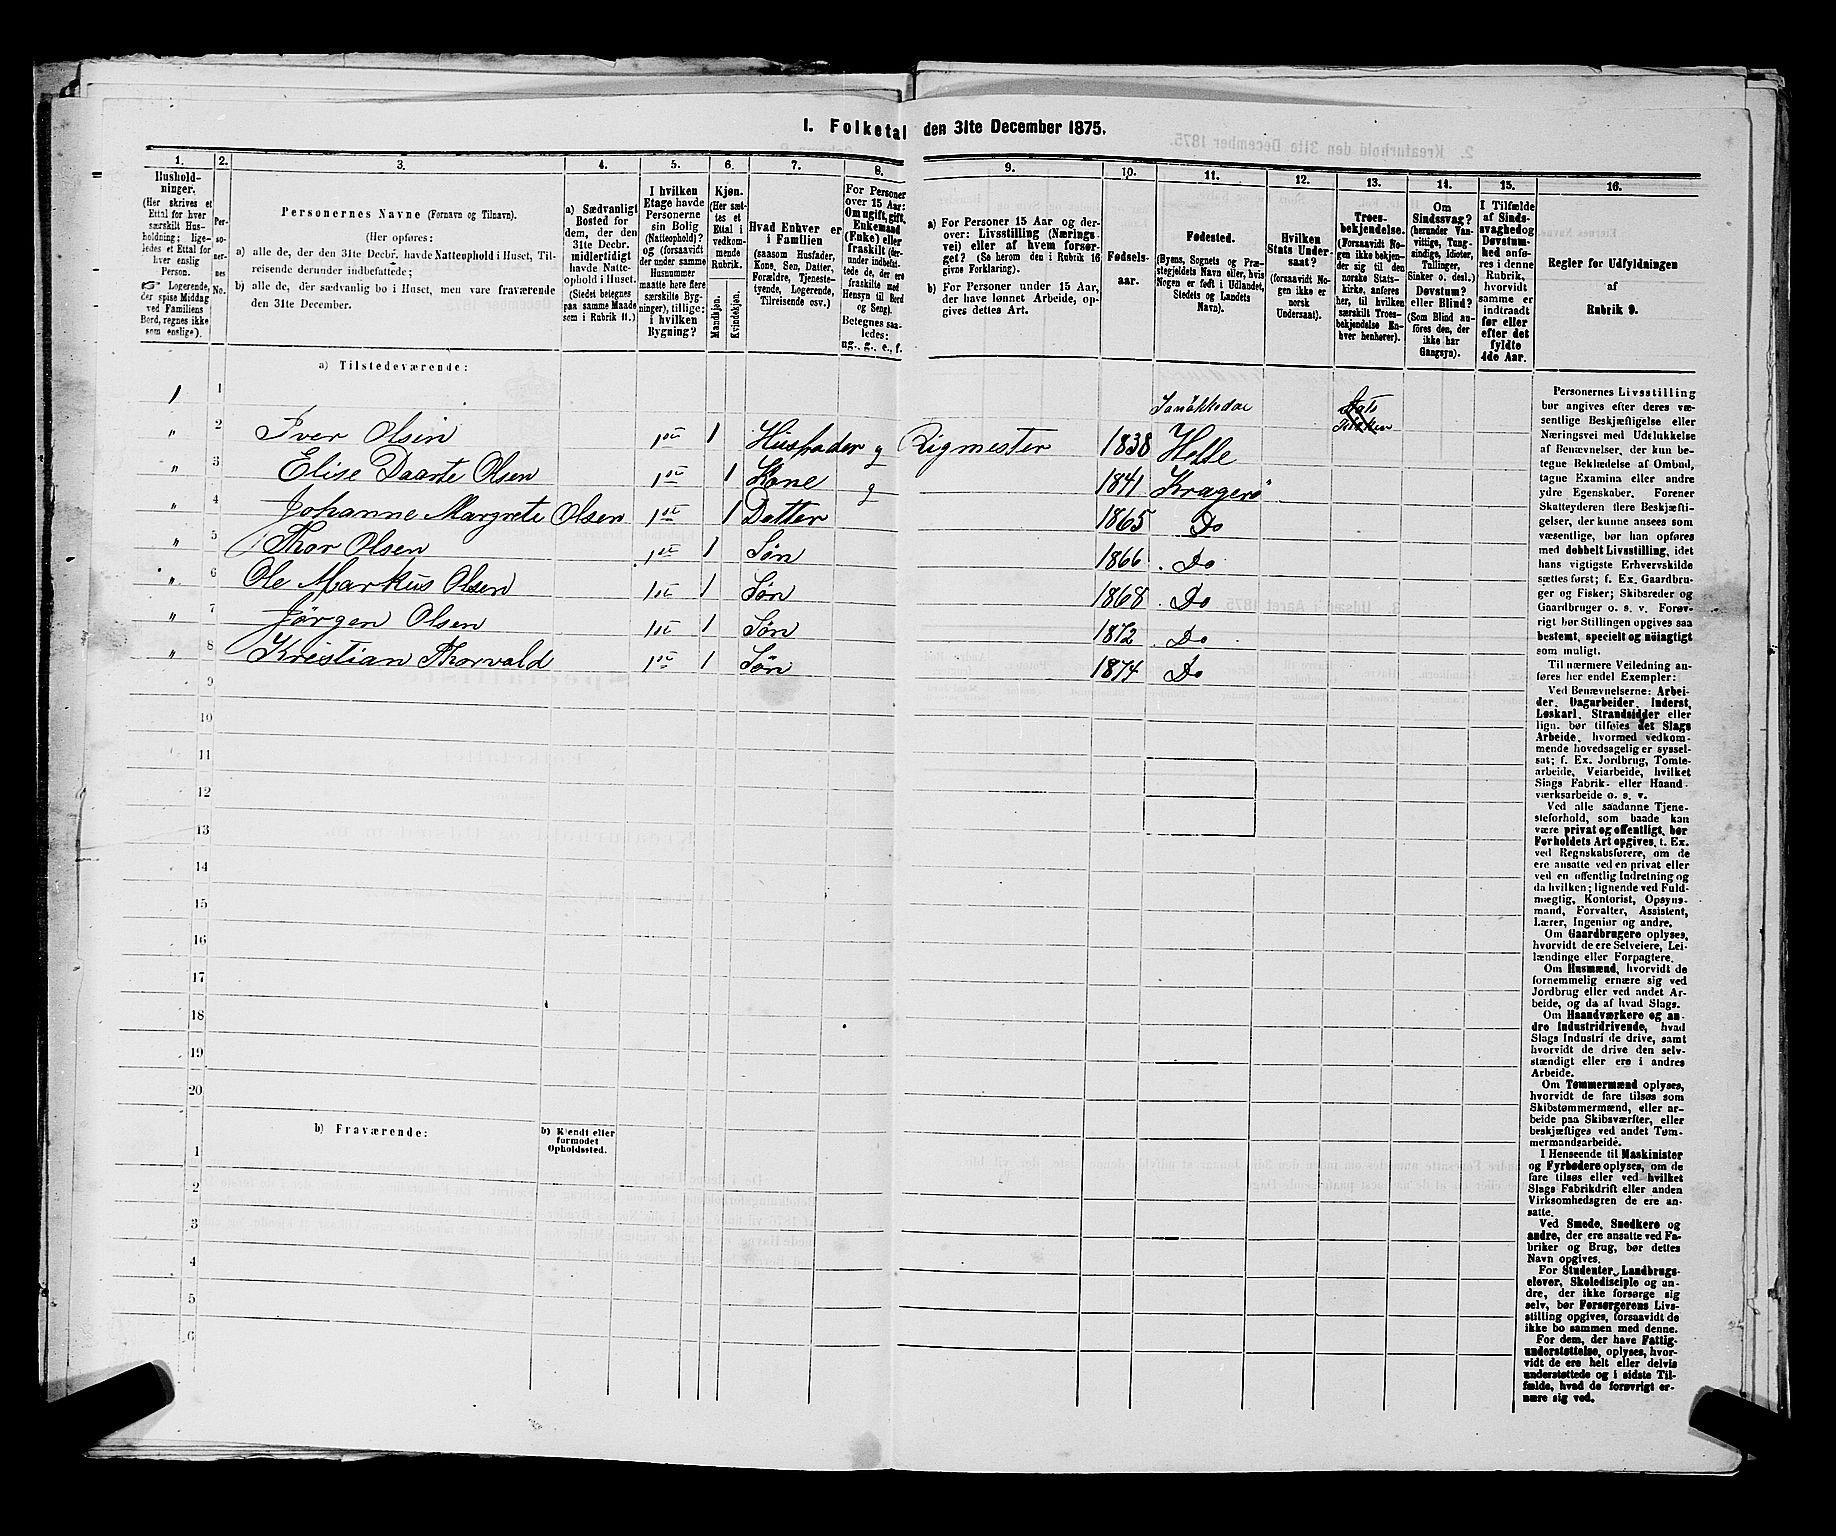 1. Folketal den 31te December 1875.
1. 2. 3. 4. 5. 6. 7. 8. 9. 10. 11. 12. 13. 14. 15. 16.
Hushold-
ninger.
(Her skrives et
Ettal for hver
særskilt Hus-
holdning; lige-
ledes et Ettal for
hver enslig
Person.
☞ Logerende,
der spise Middag
ved Familiens
Bord, regnes ikke
som enslige).
Per-
so-
ner-
nes
No.
Personernes Navne (Fornavn og Tilnavn).
(Her opføres:
a) alle de, der den 31te Decbr. havde Natteophold i Huset, Til-
reisende derunder indbefattede;
b) alle de, der sædvanlig bo i Huset, men vare fraværende
den 31te December.
a) Sædvanligt
Bosted for
dem, der den
31te Decbr.
midlertidigt
havde Natte-
ophold i Huset.
(Stedet betegnes
paa samme Maade
som i Rubrik 11.)
I hvilken
Etage havde
Personerne
sin Bolig
(Natteophold)?
og (forsaavidt
der under samme
Husnummer
maatte høre flere
særskilte Byg-
ninger), tillige:
i hvilken
Bygning?
Kjøn.
(Her sæt-
tes et
Ettal i
vedkom-
mende
Rubrik.
Mandkjøn.
Kvindekjøn.
Hvad Enhver er
i Familien
(saasom Husfader,
Kone, Søn, Datter,
Forældre, Tjeneste-
tyende, Logerende,
Tilreisende osv.)
For Personer
over 15 Aar:
Om ugift, gift,
Enkemand
(Enke) eller
fraskilt (der-
under indbefat-
tede de, der ere
fraskilte med
Hensyn til Bord
og Seng).
Betegnes saa-
ledes:
ug., g., e., f.
a) For Personer 15 Aar og der-
over: Livsstilling (Nærings-
vei) eller af hvem forsør-
get? (Se herom den i Rubrik 16
givne Forklaring).
b) For Personer under 15 Aar,
der have lønnet Arbeide, op-
gives dettes Art.
Fødsels-
aar.
Fødested.
(Byens, Sognets og Præ-
stegjeldets Navn eller, hvis
Nogen er født i Udlandet,
Stedets og Landets
Navn).
Hvilken
Stats Under-
saat?
(forsaavidt No-
gen ikke er
norsk
Undersaat).
Troes-
bekjendelse.
(Forsaavidt No-
gen ikke bekjen-
der sig til den
norske Stats-
kirke, anføres
her, til hvilken
særskilt Troes-
bekjendelse En-
hver henhører).
Om
Sindssvag?
(herunder Van-
vittige, Tung-
sindige, Idioter,
Tullinger,
Sinker o. desl.)
Døvstum?
eller Blind?
(Som Blind an-
føres den, der
ikke har
Gangsyn).
I Tilfælde
af Sinds-
svaghed og
Døvstum-
hed anfø-
res i denne
Rubrik,
hvorvidt
samme er
indtraadt
før eller
efter det
fyldte
4de Aar.
Regler for Udfyldningen
af
Rubrik 9.
a) Tilstedeværende:
1 1
" 2 Iver Olsen 1ste 1 Husfader g Rigmester 1838 Helle
" 3 Elise Daarte Olsen 1ste 1 Kone g 1841 Kragerø
" 4 Johanne Margrete Olsen 1ste 1 Datter 1865 Do
" 5 Thor Olsen 1ste 1 Søn 1866 Do
" 6 Ole Markus Olsen 1ste 1 Søn 1868 Do
" 7 Jørgen Olsen 1ste 1 Søn 1872 Do
" 8 Kristian Thorvald 1ste 1 Søn 1874 Do
9
10
11
12
13
14
15
16
17
18
19
20
b) Fraværende:
b) Kjendt eller
formodet
Opholdssted.
1
2
3
4
5
6
Personernes Livsstilling
bør angives efter deres væ-
sentlige Beskjæftigelse eller
Næringsvei med Udelukkelse
af Benævnelser, der kun be-
tegne Beklædelse af Ombud,
tagne Examina eller andre
ydre Egenskaber. Forener
Skatteyderen flere Beskjæfti-
gelser, der kunne ansees som
væsentlige, bør han opføres
med dobbelt Livsstilling, idet
hans vigtigste Erhvervskilde
sættes først; f. Ex. Gaardbru-
ger og Fisker; Skibsreder og
Gaardbruger o. s. v. Forøv-
rigt bør Stillingen opgives saa
bestemt, specielt og nøiagtigt
som muligt.
Til nærmere Veiledning an-
føres her endel Exempler:
Ved Benævnelserne: Arbei-
der, Dagarbeider, Inderst,
Løskarl, Strandsidder eller
lign. bør tilføies det Slags
Arbeide, hvormed vedkom-
mende hovedsagelig er syssel-
sat; f. Ex. Jordbrug, Tomte-
arbeide, Veiarbeide, hvilket
Slags Fabrik- eller Haand-
værksarbeide o. s. v.
Ved alle saadanne Tjene-
steforhold, som baade kan
være privat og offentligt, bør
Forholdets Art opgives, t. Ex.
ved Regnskabsførere, om de
ere ansatte ved en privat eller
ved en offentlig Indretning og
da hvilken; lignende ved Fuld-
mægtig, Kontorist, Opsyns-
mand, Forvalter, Assistent,
Lærer, Ingeniør og andre.
Om Gaardbrugere oplyses,
hvorvidt de ere Selveiere, Lei-
lændinge eller Forpagtere.
Om Husmænd, hvorvidt de
fornemmelig ernære sig ved
Jordbrug eller ved andet Ar-
beide, og da af hvad Slags.
Om Haandværkere og an-
dre Industridrivende, hvad
Slags Industri de drive, samt
hvorvidt de drive den selv-
stændigt eller ere i andres
Arbeide.
Om Tømmermænd oplyses,
hvorvidt de fare tilsøs som
Skibstømmermænd, eller ar-
beide paa Skibsværfter, eller
beskjæftiges ved andet Tøm-
mermandsarbeide.
I Henseende til Maskinister
og Fyrbødere oplyses, om de
fare tilsøs eller ved hvilket
Slags Fabrikdrift eller anden
Virksomhedsgren de ere an-
satte.
Ved Smede, Snedkere og
andre, der ere ansatte ved Fa-
briker og Brug, bør dettes
Navn opgives.
For Studenter, Landbrugs-
elever, Skoledisciple og an-
dre, der ikke forsørge sig
selv, bør Forsørgerens Livs-
stilling opgives, forsaavidt de
ikke bo sammen med denne.
For dem, der have Fattig-
understøttelse, oplyses, hvor-
vidt de ere helt eller delvis
understøttede og i sidste Til-
fælde, hvad de forøvrigt er-
nære sig ved.